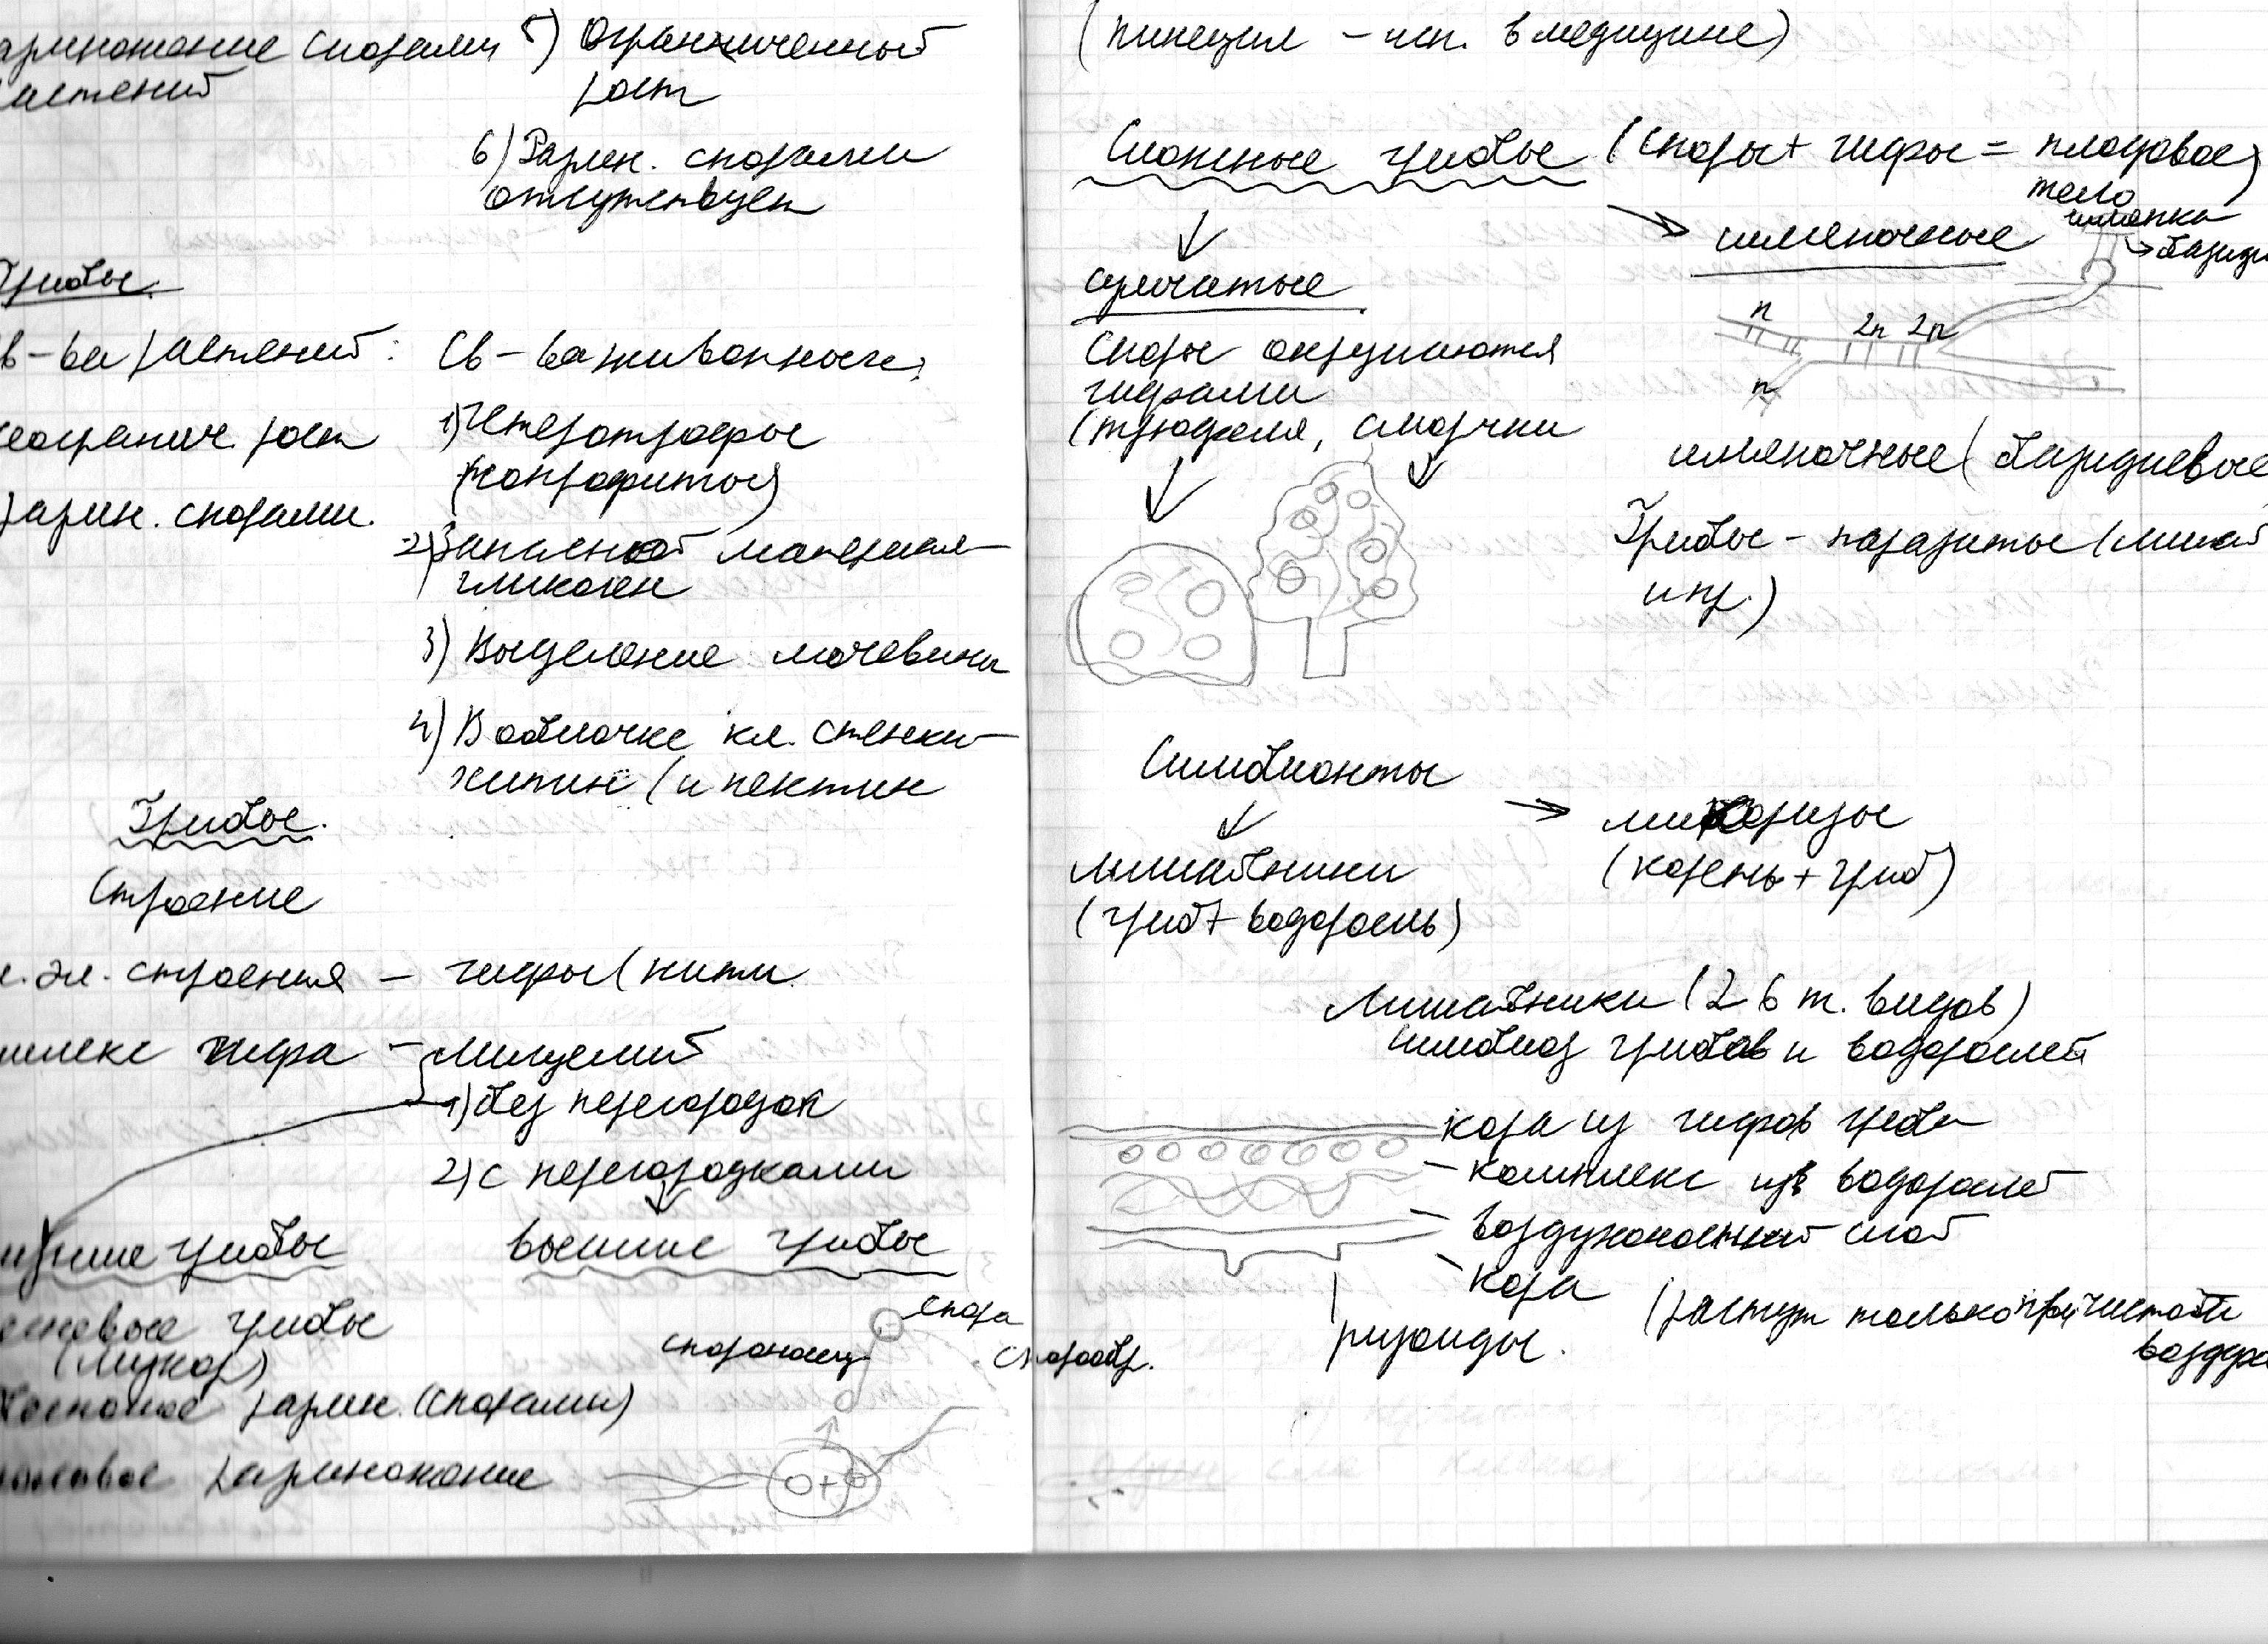 размножение спорами
растений
5) Ограниченный
рост
6) Размн. спорами
отсутствует
Грибы.
св-ва растений:
неогранич. рост
размн. спорами.
Св-ва животных:
1) Гетеротрофы
2) Запасной материал –
гликоген
3) Выделение мочевины
4) В оболочке кл. стенки –
хитин (и пектин
Грибы.
Строение
эл. строения – гифы (нити
комплекс гифа – мицелий
1) без перегородок
2) с перегородками
низшие грибы
высшие грибы
плесневые грибы
(мукор)
Бесполое размн. (спорами)
половое размножение
спора
спорообр.
(пеницил – исп. в медицине)
Сложные грибы (споры + гифы = плодовое
тело
шляпка
→ шляпочные
→ базиди
сумчатые
n 2n 2n
n
Споры окружаются
гифрами
(трюфеля, сморчки
шляпочные (базидиевые
Грибы – паразиты (лишай
и пр.)
Симбионты
микоризы
(корень + гриб)
лишайники
(гриб + водоросль)
Лишайники (26 т. видов)
симбиоз грибов и водорослей
кора из гифов гриба
– комплекс из водорослей
– воздухоносный слой
– кора
ризоиды.
(растут только при чистоте
воздуха